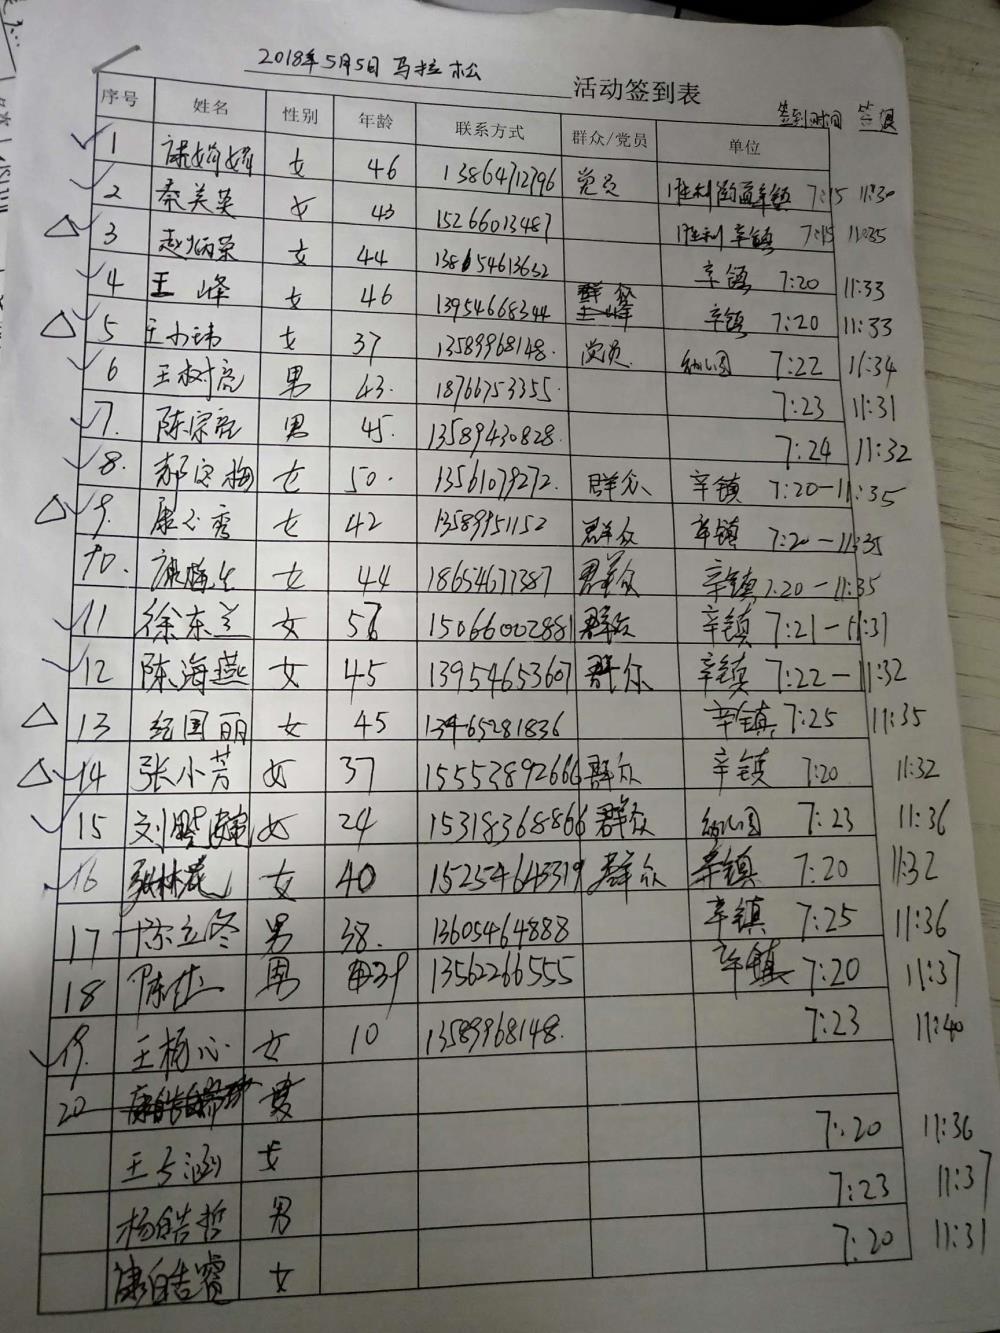 2018年5月5日 马拉松 活动签到表
序号 姓名 性别 年龄 联系方式 群众/党员 单位 签到时间 签退
1 康娟娟 女 46 13864712796 党员 胜利街道辛镇 7:15 11:30
2 秦美英 女 43 15266013487 胜利辛镇 7:15 11:35
3 赵炳荣 女 44 138654613632 辛镇 7:20 11:33
4 王峰 女 46 13954668344 群众 辛镇 7:20 11:33
5 王小玮 女 37 13589968148. 党员. 幼儿园 7:22 11:34
6 王树亮 男 43. 18766753355. 7:23 11:31
7. 陈宗亮 男 45. 13589430828. 7:24 11:32
8. 郝宝梅 女 50. 13561079272. 群众 辛镇 7:20-11:35
9. 康心秀 女 42 13589951152 群众 辛镇 7:20-11:35
10. 女 44 18654677387 群众 辛镇 7.20-11:35
11 徐东兰 女 56 15066002881 群众 辛镇 7:21-11:31
12 陈海燕 女 45 13954653607 群众 辛镇 7:22-11:32
13 纪国丽 女 45 13465281836 辛镇 7:25 11:35
14 张小芳 女 37 15553892666 群众 辛镇 7:20 11:32
15 女 24 15318368866 群众 幼儿园 7:23 11:36
16 张林花 女 40 15254643319 群众 辛镇 7:20 11:32
17 陈立冬 男 38. 13605464888 辛镇 7:25 11:36
18 男 39 13562266555 辛镇 7:20 11:37
19. 王杨心 女 10 13589968148. 7:23 11:40
20
王子涵 女 7:20 11:36
杨皓哲 男 7:23 11:37
康皓睿 女 7:20 11:31